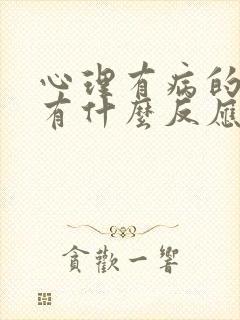 心理有病的
有什麼反應
貪歡一響